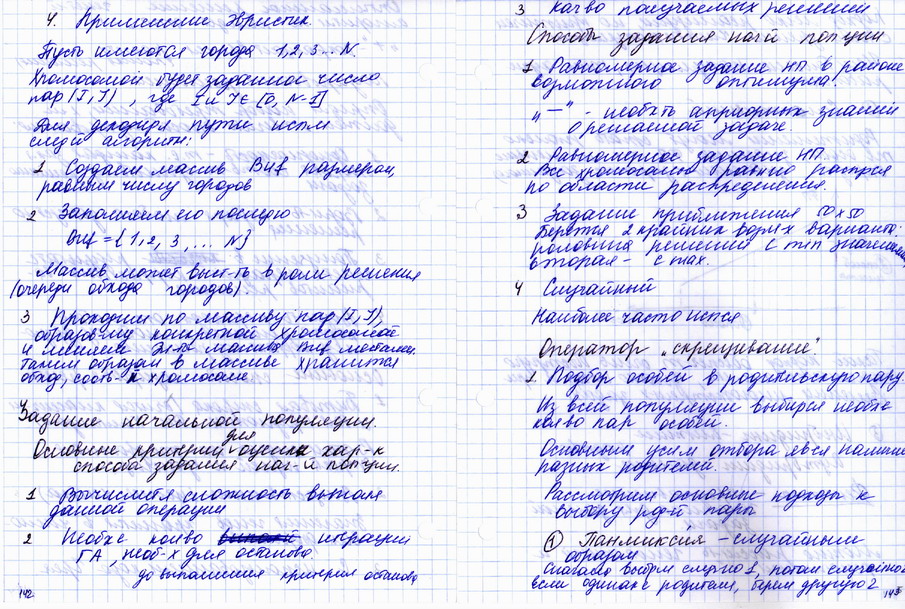 4. Применение Эвристик.
Пусть имеются города 1,2,3... N.
Хромосомой будем заданное число
пар (I, J), где I и J ∈ [0, N-1]
Для декодир-я пути испм
след алгоритм:
1 Создаем массив Buf размером,
равным числу городов
2 Заполняем его послед-ю
Buf = {1, 2, 3, ... N}
Массив может выст-ть в роли решения
(очереди обхода городов).
3 Проходим по массиву пар (I, J),
образов-му конкретной хромосомой
и меняем эл-ты массива Buf местами.
Таким образом в массиве хранится
обход, соотв-й хромосоме
Задание начальной популяции.
для
Основные критерии оценки хар-к
способа задания нач-й поп-ции.
1 Вычислит-я сложность вып-ния
данной операции
2 Необх кол-во итераций
ГА, необ-х для останова.
до выполнения критерия останова
142
3 Кол-во получаемых решений
Способы задания нач-й поп-ции
1 Равномерное задание НП в районе
возможного оптимума.
„—" - необх-ть априорных знаний
о решаемой задаче.
2 Равномерное задание НП.
Все хромосомы равно распр-ся
по области распределения.
3 Задание приближения 50x50
Берётся 2 крайних варианта:
половина решений с min значением
вторая - с max.
4 Случайный
Наиболее часто исп-ся
Оператор „скрещивание".
1. Подбор особей в родительскую пару.
Из всей популяции выбир-ся необх-е
кол-во пар особей.
Основным усл-м отбора явл-ся наличие
разных родителей.
Рассмотрим основные подходы к
выбору род-й пары
① Панмиксия - случайным
образом
Сначала выбрали случ-но 1, потом случайно
если одинак-е родители, берем другую 2
143